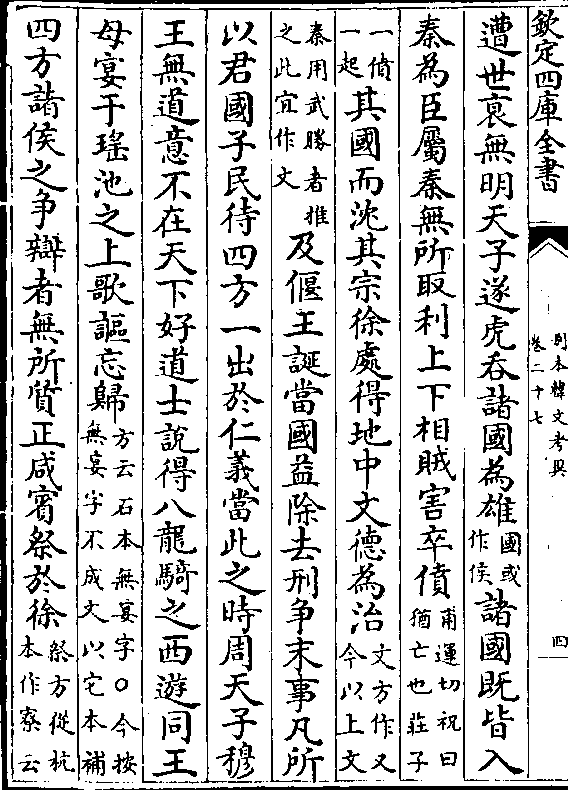 欽定四庫全書
別本韓文考異
卷二十七
四
遭世衰無明天子遂虎吞諸國為雄國或作侯諸國既皆入
秦為臣屬秦無所取利上下相賊害卒僨甫運切祝曰猶亡也莊子
一僨一起其國而沈其宗徐處得地中文德為治文方作又今以上文
秦用武勝者推之此宜作文及偃王誕當國益除去刑爭末事凡所
以君國子民待四方一出於仁義當此之時周天子穆
王無道意不在天下好道士說得八龍騎之西遊同王
母宴于瑤池之上歌謳忘歸方云石本無宴字○今按無宴字不成文以它本補
四方諸侯之爭辯者無所質正咸賓祭於徐祭方從杭本作寮云